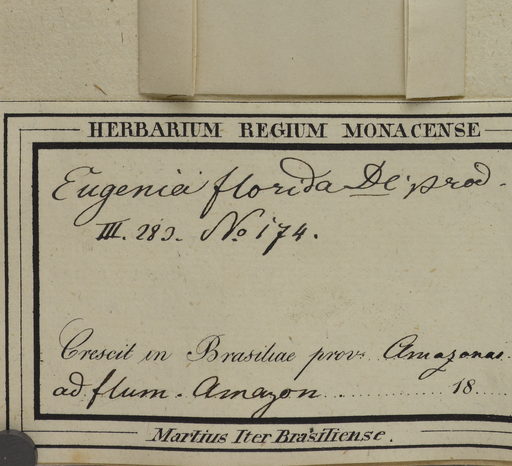 HERBARIUM REGIUM MONACENSE
Eugenia florida DC. prod.
III. 283. No 174.
Crescit in Brasiliae prov. Amazonas
ad flum. Amazon 18
Martius Iter Brasiliense.